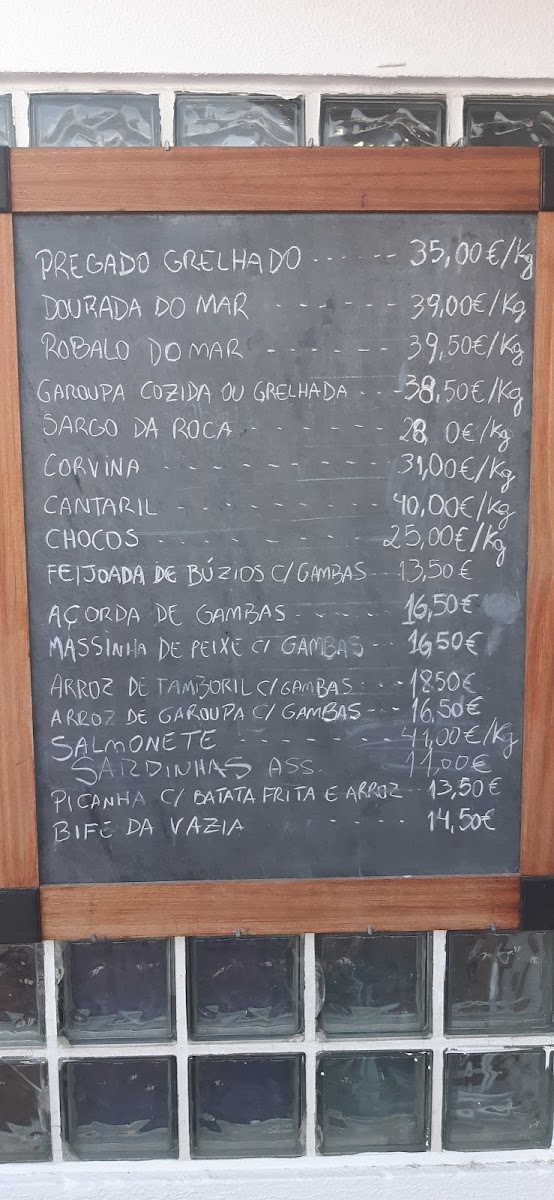 PREGADO GRELHADO ------ 35,00€/Kg
DOURADA DO MAR ------ 39,00€/Kg
ROBALO DO MAR ------ 39,50€/Kg
GAROUPA COZIDA OU GRELHADA --- 38,50€/Kg
SARGO DA ROCA ------- 28, 0€/Kg
CORVINA --------- 31,00€/Kg
CANTARIL --------- 40,00€/Kg
CHOCOS ---------- 25,00€/Kg
FEIJOADA DE BÚZIOS C/GAMBAS -- 13,50€
AÇORDA DE GAMBAS ----- 16,50€
MASSINHA DE PEIXE C/ GAMBAS -- 16,50€
ARROZ DE TAMBORIL C/GAMBAS --- 18,50€
ARROZ DE GAROUPA C/ GAMBAS --- 16,50€
SALMONETE -------- 41,00€/Kg
SARDINHAS ASS. 11,00€
PICANHA C/ BATATA FRITA E ARROZ -- 13,50€
BIFE DA VAZIA ---- 14,50€